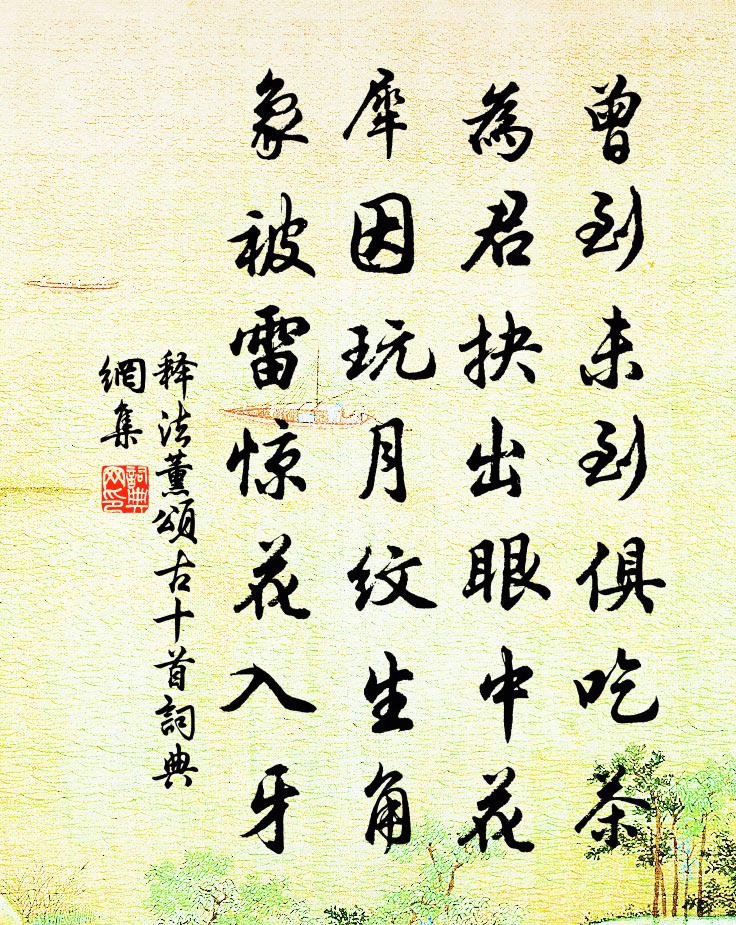 曾到未到俱吃茶
為君抉出眼中花
犀因玩月纹生角
象被雷惊花入牙
释法薰頌古十首詞典
網集
詞典
网印